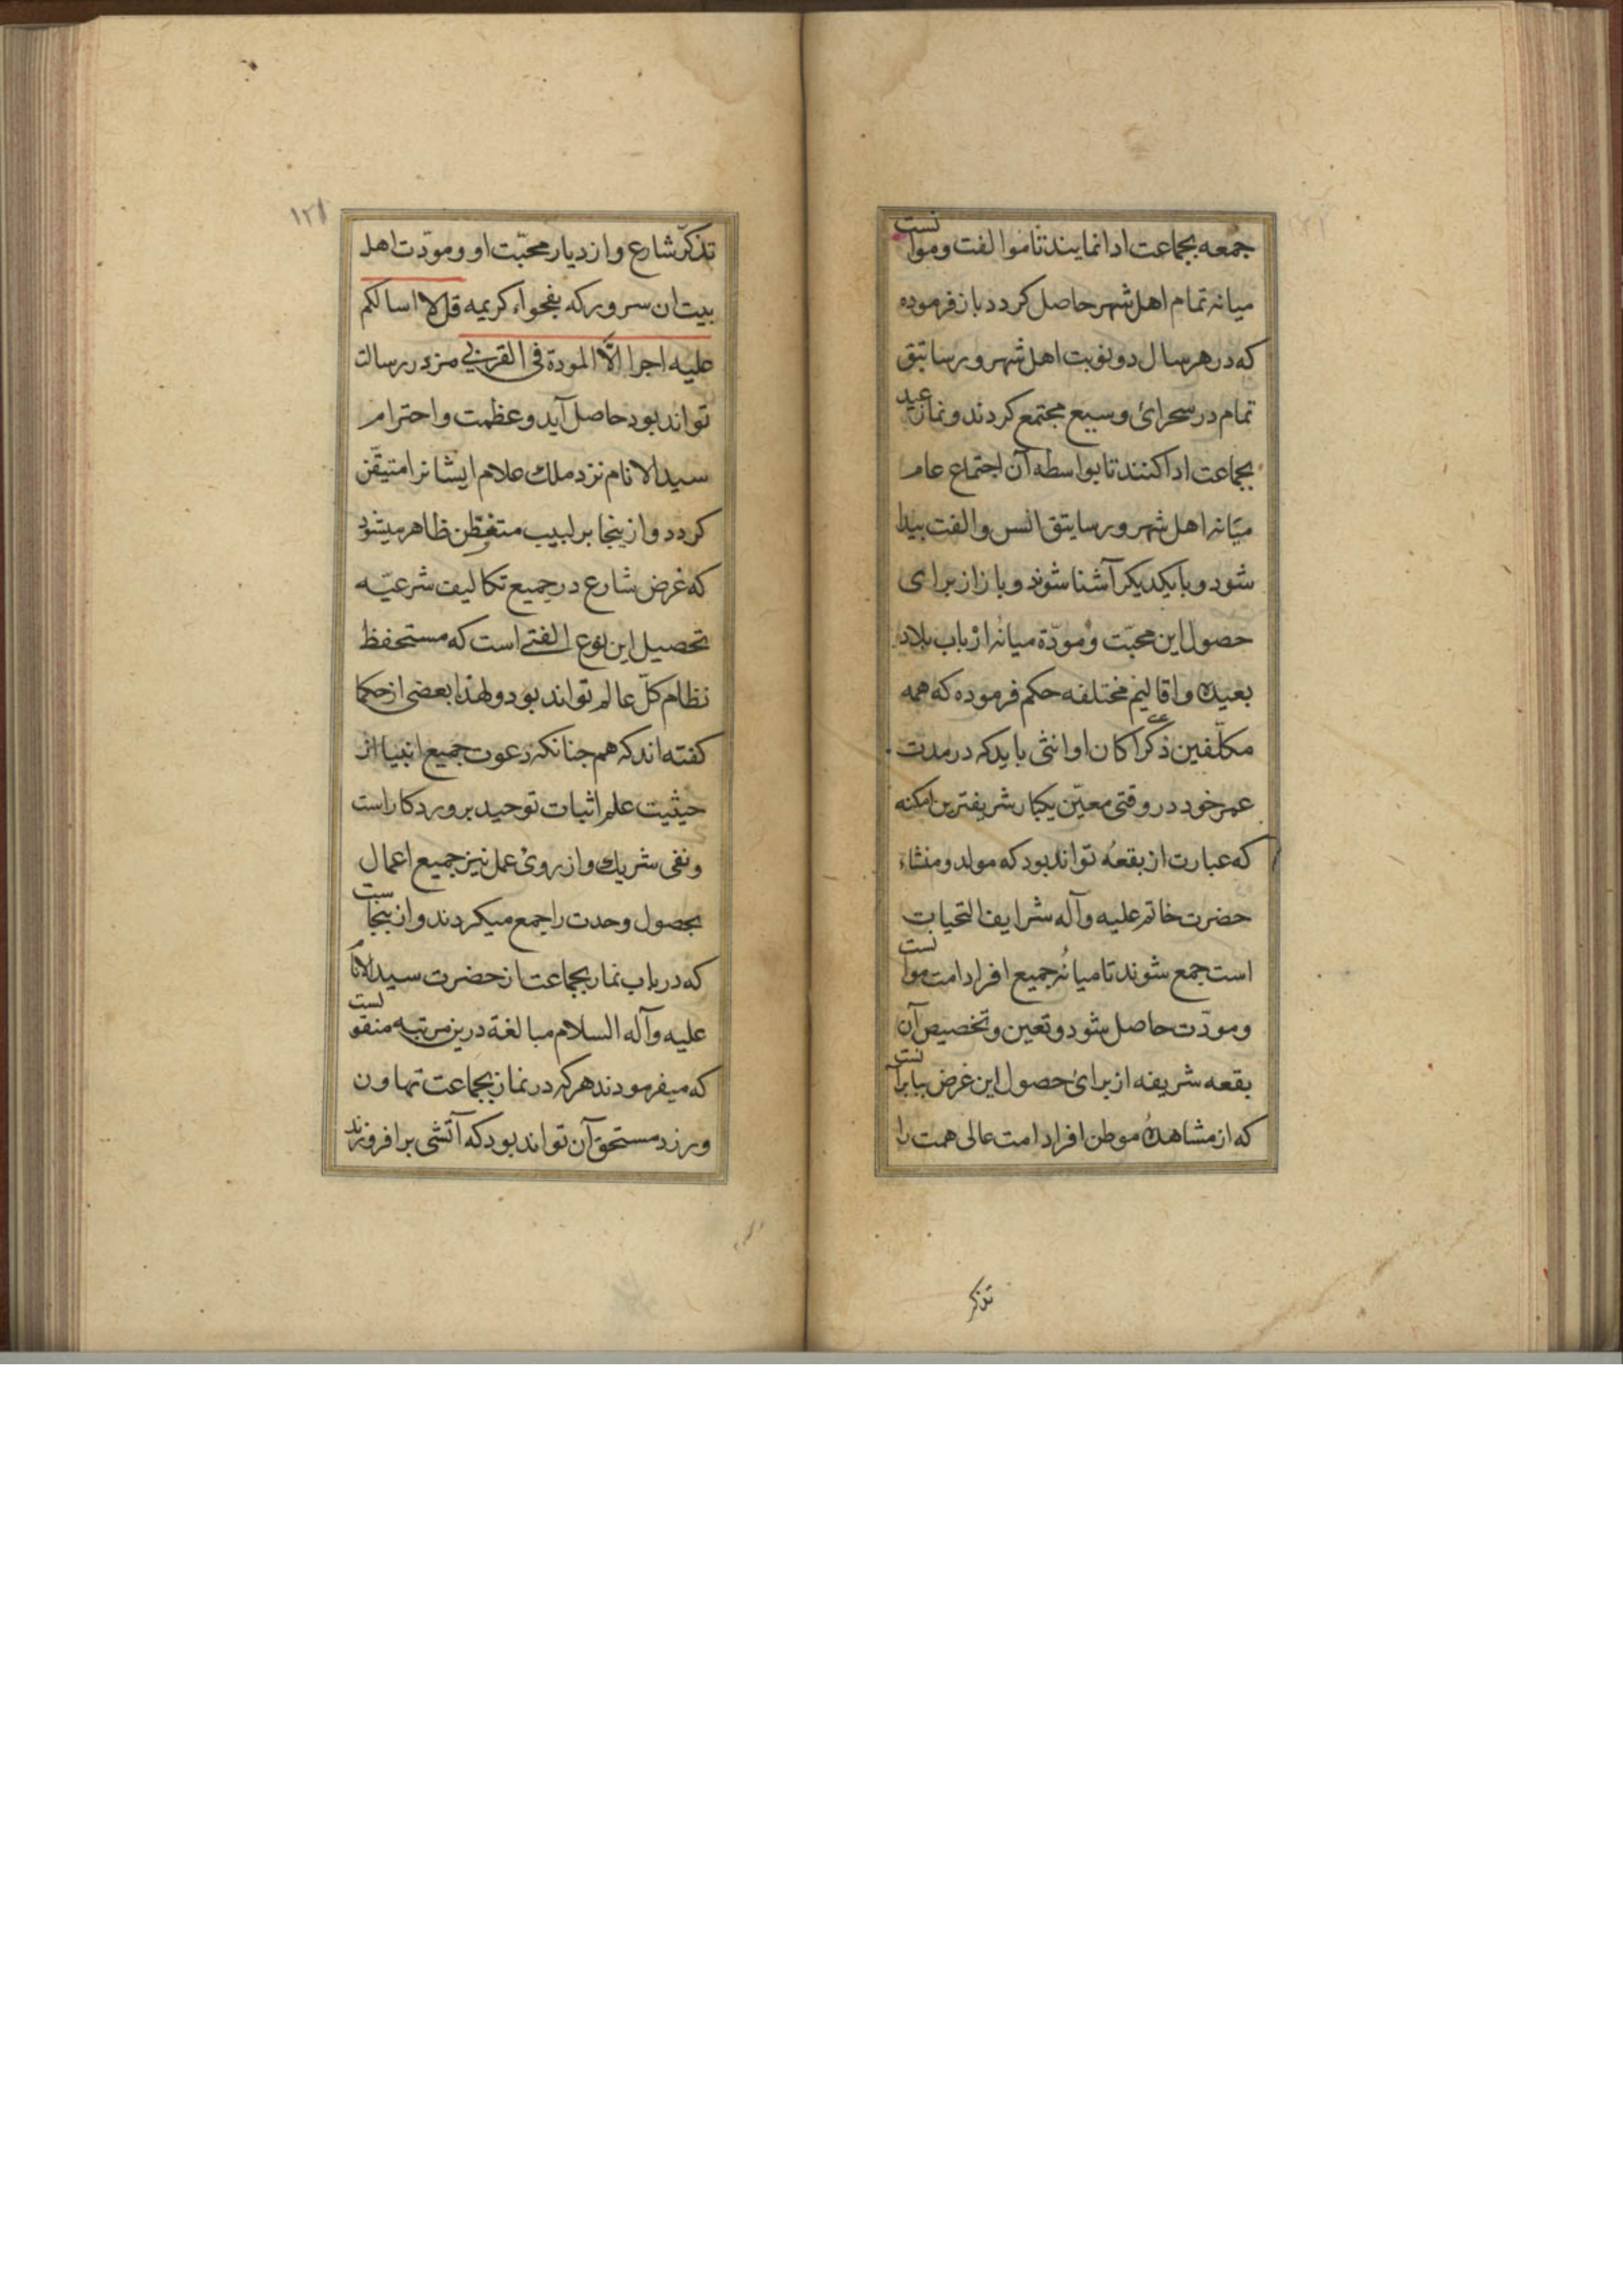 جمعه بجماعت ادا نمایند تا موالفت و موانست
میانه تمام اهل شهر حاصل کردد باز فرموده
که در هر سال دو نوبت اهل شهر و رساتیق
تمام در سحرائ وسیع مجتمع کردند و نماز عید
بجماعت ادا کنند تا بواسطه آن اجتماع عام
میانه اهل شهر و رساتیق انس و الفت بیدا
شود و با یکدیکر آشنا شوند و باز از برای
حصول این محبّت و مودّة میانه ارباب بلاد
بعیده و اقالیم مختلفه حکم فرموده که همه
مکلّفین ذکرا کان او انثی باید که در مدت
عمر خود در وقتی معیّن یکبار شریفترین امکنه
که عبارت از بقعه تواند بود که مولد و منشاء
حضرت خاتم علیه و آله شرایف التحیات
است جمع شوند تا میانه جمیع افراد امت موانست
و مودّت حاصل شود و تعین و تخصیص آن
بقعه شریفه از برائ حصول این غرض بنابرآنست
که از مشاهده موطن افراد امت عالی همت را
تذکر
۱۲۱
تذکّر شارع و ازدیار محبّت او و مودّت اهل
بیت ان سرور که بفحواء کریمه قل لا اسالکم
علیه اجرا الّا المودة فی القربی مزد رسالت
تواند بود حاصل آید و عظمت و احترام
سید الانام نزد ملك علام ایشانرا متیقّن
کردد و ازینجا بر لبیب متفطّن ظاهر میشود
که غرض شارع در جمیع تکالیف شرعیّه
تحصیل این نوع الفتی است که مستحفظ
نظام کلّ عالم تواند بود و لهذا بعضی از حکما
کفته اند که هم جنانکه دعوت جمیع انبیا از
حیثیت علم اثبات توحید بروردکار است
و نفی شریك و از روئ عمل نیز جمیع اعمال
بحصول وحدت راجمع میکردند و از ینجاست
که در باب نماز بجماعت از حضرت سید الانام
علیه و آله السلام مبالغة درین مرتبه منقولست
که میفرمودند هر که در نماز بجماعت تهاون
ورزد مستحق آن تواند بود که آتشی برافروزند